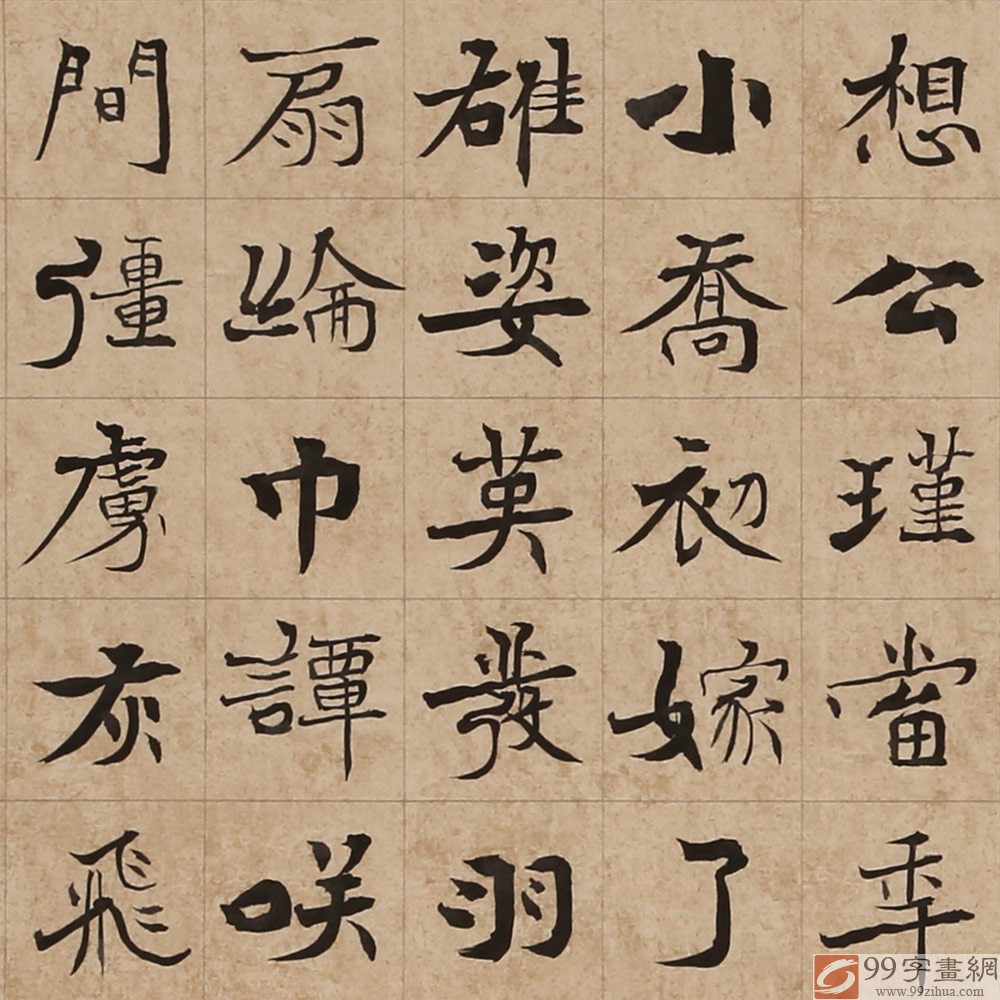 想公瑾當年
小喬初嫁了
雄姿英發羽
扇綸巾譚咲
間彊虜灰飛
99字畫網
www.99zihua.com